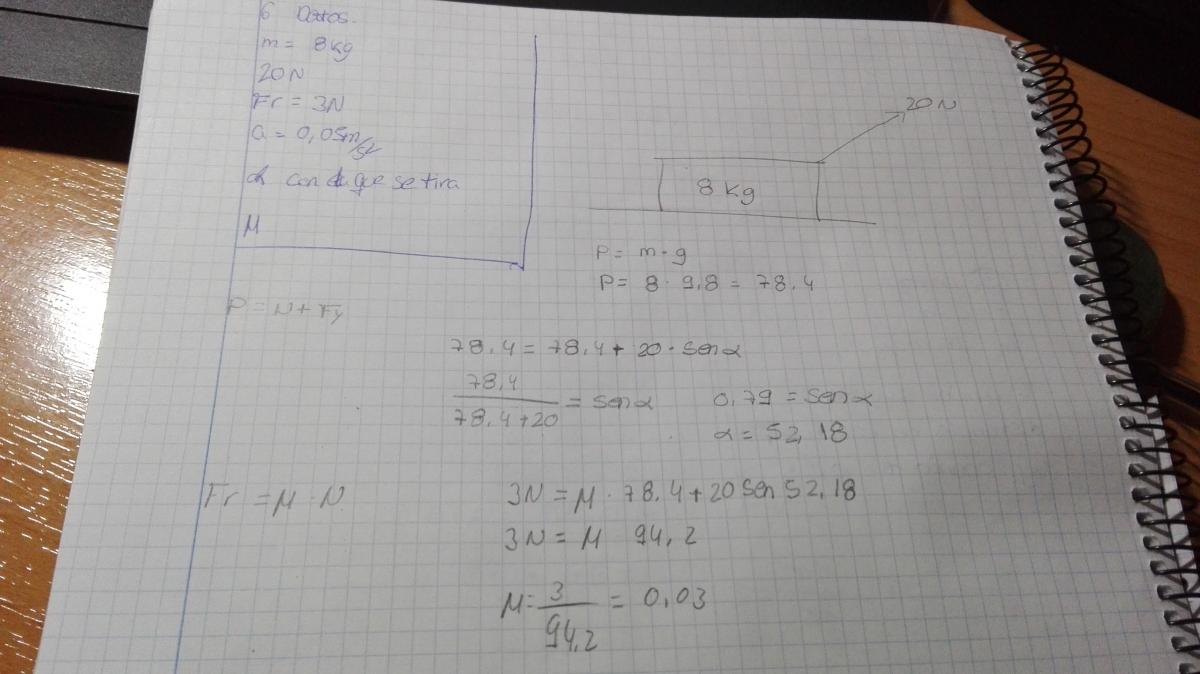 6 Datos.
m = 8kg
20N
Fr = 3N
a = 0,05m/s²
α con que se tira
μ
20N
8 kg
P = m · g
P = 8 · 9,8 = 78,4
P = N + Fy
78,4 = 78,4 + 20 · sen α
78,4
78,4 + 20
= sen α
0,79 = sen α
α = 52,18
Fr = μ · N
3N = μ · 78,4 + 20 sen 52,18
3N = μ 94,2
μ = 3 / 94,2 = 0,03